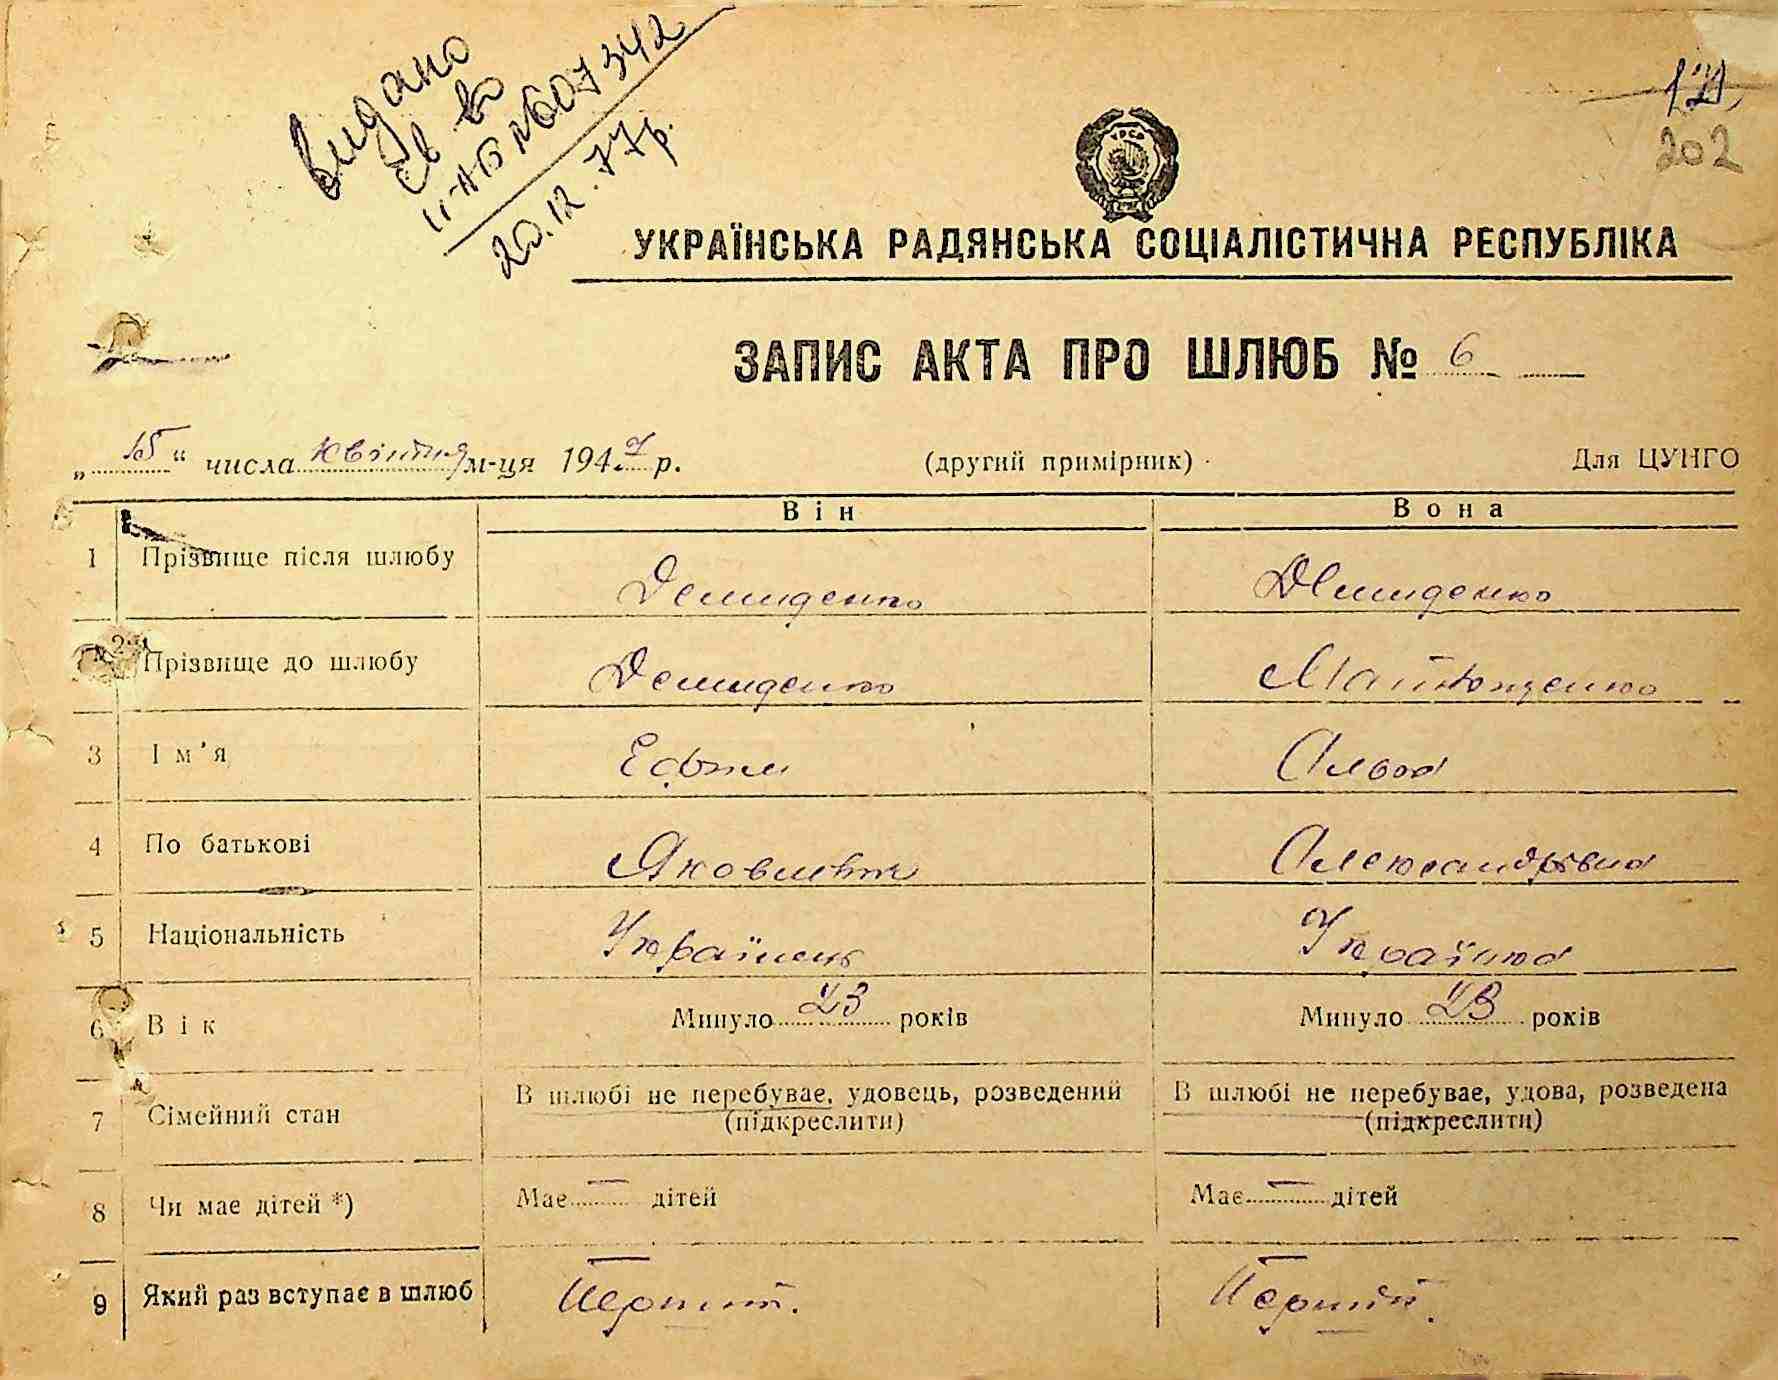 видано
св во
II-АБ №607342
20.12.77р.
121
202
УРСР
УКРАЇНСЬКА РАДЯНСЬКА СОЦІАЛІСТИЧНА РЕСПУБЛІКА
ЗАПИС АКТА ПРО ШЛЮБ № 6
„15“ числа квітня м-ця 1947 р. (другий примірник) Для ЦУНГО
Він Вона
1 Прізвище після шлюбу Демиденко Демиденко
2 Прізвище до шлюбу Демиденко
3 Ім'я Ефим
4 По батькові Яковлевич Александрівна
5 Національність Українець Українка
6 Вік Минуло 23 років Минуло 23 років
7 Сімейний стан В шлюбі не перебуває, удовець, розведений В шлюбі не перебуває, удова, розведена
(підкреслити) (підкреслити)
8 Чи має дітей *) Має — дітей Має — дітей
9 Який раз вступає в шлюб Перший. Перший.